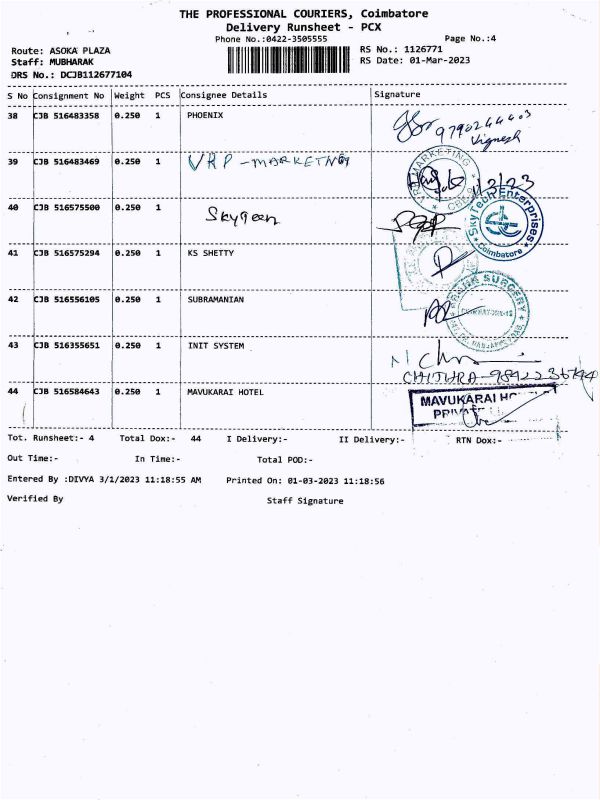 THE PROFESSIONAL COURIERS, Coimbatore
Delivery Runsheet - PCX
Phone No.:0422-3505555 Page No.:4
Route: ASOKA PLAZA RS No.: 1126771
Staff: MUBHARAK RS Date: 01-Mar-2023
DRS No.: DCJB112677104
S No Consignment No Weight PCS Consignee Details Signature
38 CJB 516483358 0.250 1 PHOENIX
9790244403
Vignesh
39 CJB 516483469 0.250 1 VRP - MARKETNG
VRP MARKETING
1/3/23
40 CJB 516575500 0.250 1 Skygeen
SkyTech Enterprises
Coimbatore
41 CJB 516575294 0.250 1 KS SHETTY
42 CJB 516556105 0.250 1 SUBRAMANIAN
SURGERY
43 CJB 516355651 0.250 1 INIT SYSTEM
CHITHRA - 9892236794
44 CJB 516584643 0.250 1 MAVUKARAI HOTEL
MAVUKARAI
Tot. Runsheet:- 4 Total Dox:- 44 I Delivery:- II Delivery:- RTN Dox:-
Out Time:- In Time:- Total POD:-
Entered By :DIVYA 3/1/2023 11:18:55 AM Printed On: 01-03-2023 11:18:56
Verified By Staff Signature